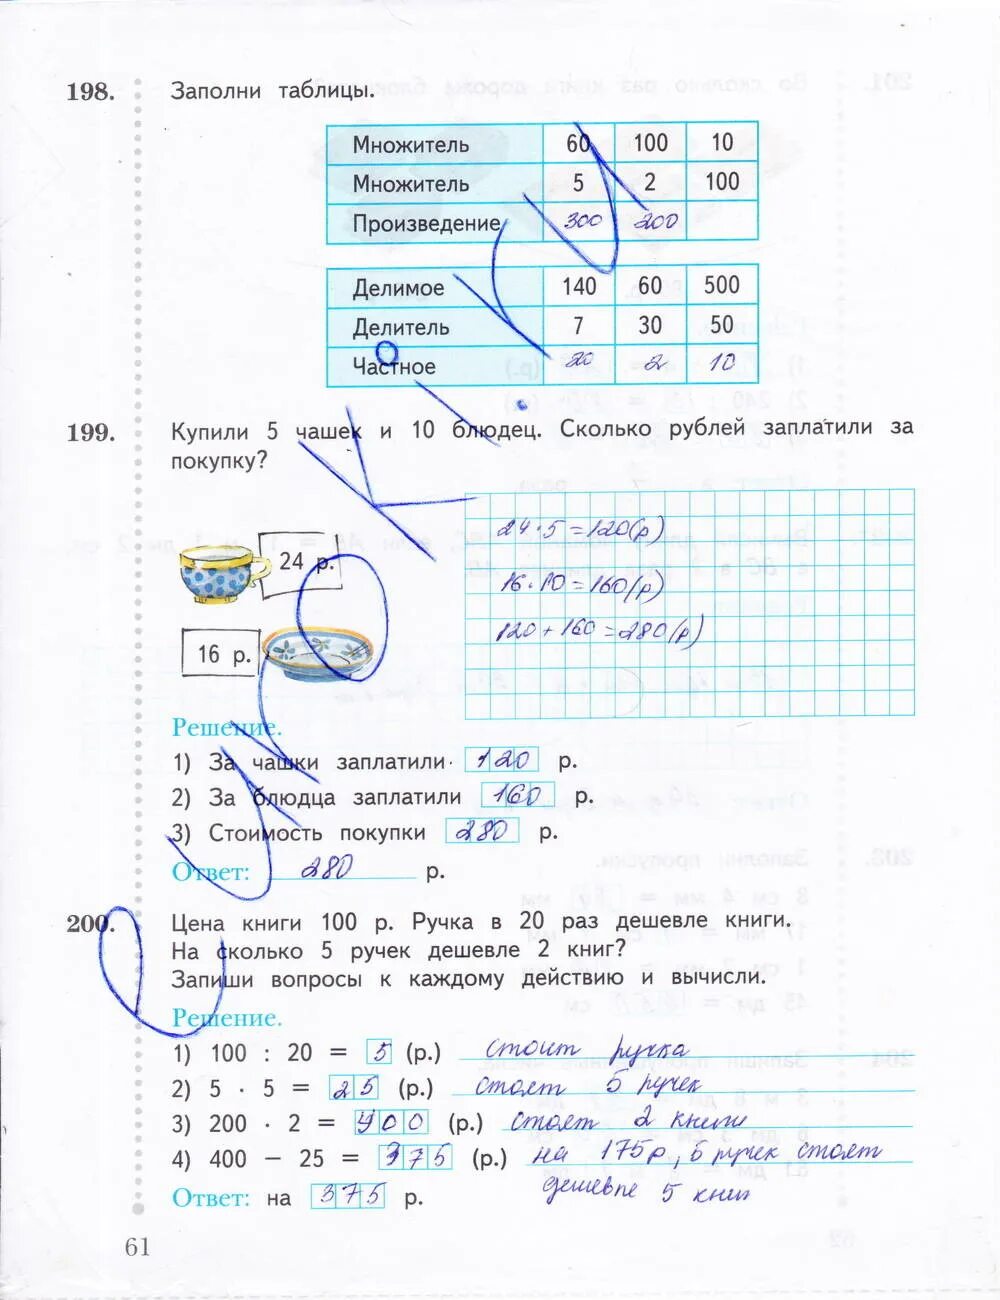 198. Заполни таблицы.
Множитель 60 100 10
Множитель 5 2 100
Произведение 300 200
Делимое 140 60 500
Делитель 7 30 50
Частное 20 2 10
199. Купили 5 чашек и 10 блюдец. Сколько рублей заплатили за
покупку?
24 р.
16 р.
24·5=120(р)
16·10=160(р)
120+160=280(р)
Решение.
1) За чашки заплатили 120 р.
2) За блюдца заплатили 160 р.
3) Стоимость покупки 280 р.
Ответ: 280 р.
200. Цена книги 100 р. Ручка в 20 раз дешевле книги.
На сколько 5 ручек дешевле 2 книг?
Запиши вопросы к каждому действию и вычисли.
Решение.
1) 100 : 20 = 5 (р.) стоит ручка
2) 5 · 5 = 25 (р.) стоят 5 ручек
3) 200 · 2 = 400 (р.) стоят 2 книги
4) 400 − 25 = 375 (р.) на 175р, 5 ручек стоят
дешевле 5 книг
Ответ: на 375 р.
61